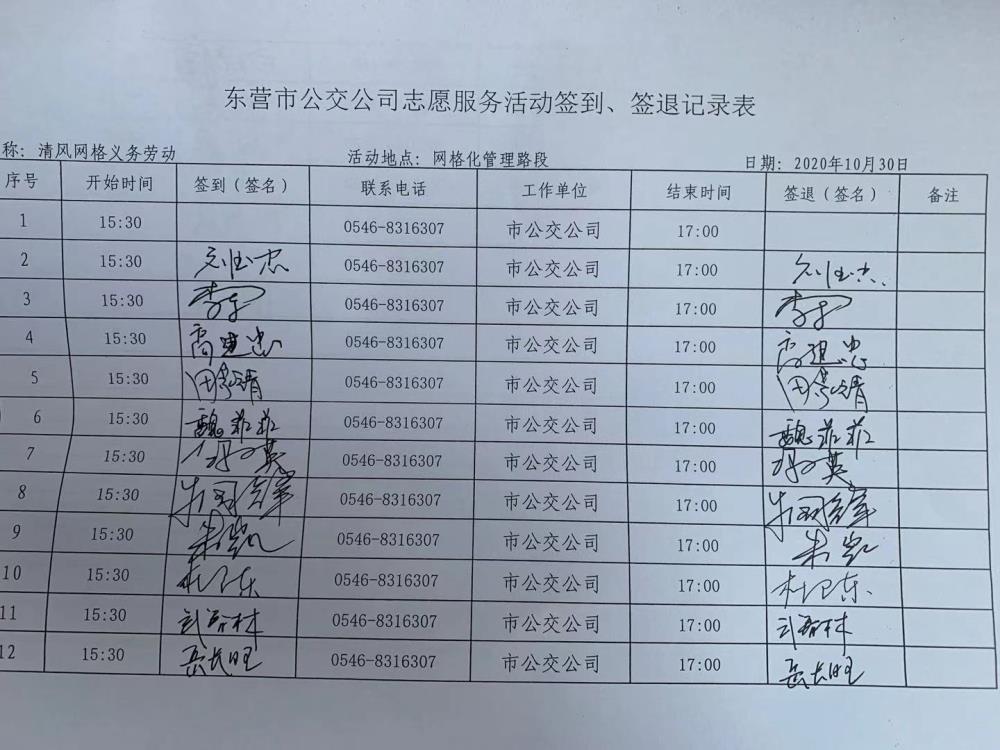 东营市公交公司志愿服务活动签到、签退记录表
称：清风网格义务劳动 活动地点：网格化管理路段 日期：2020年10月30日
序号 开始时间 签到（签名） 联系电话 工作单位 结束时间 签退（签名） 备注
1 15:30 0546-8316307 市公交公司 17:00
2 15:30 0546-8316307 市公交公司 17:00
3 15:30 0546-8316307 市公交公司 17:00
4 15:30 0546-8316307 市公交公司 17:00
5 15:30 0546-8316307 市公交公司 17:00
6 15:30 魏菲菲 0546-8316307 市公交公司 17:00 魏菲菲
7 15:30 0546-8316307 市公交公司 17:00
8 15:30 0546-8316307 市公交公司 17:00
9 15:30 朱凯 0546-8316307 市公交公司 17:00 朱凯
10 15:30 杜卫东 0546-8316307 市公交公司 17:00 杜卫东
11 15:30 武春林 0546-8316307 市公交公司 17:00 武春林
12 15:30 岳长旺 0546-8316307 市公交公司 17:00 岳长旺